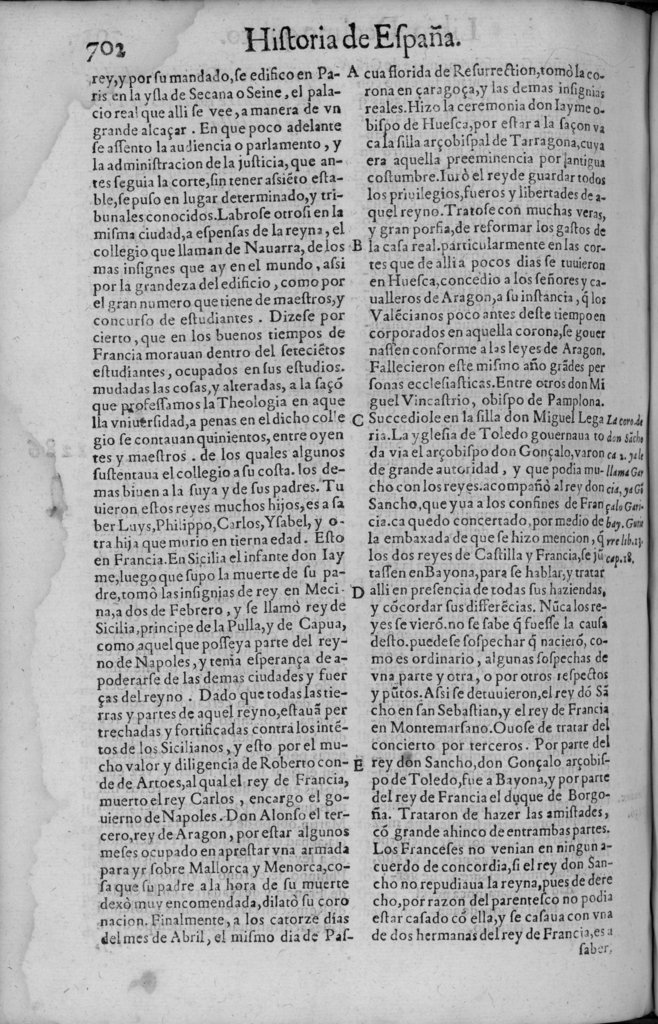 702
Historia de España.
rey, y por su mandado, se edifico en Pa-
ris en la ysla de Secana o Seine, el pala-
cio real que alli se vee, a manera de vn
grande alcaçar. En que poco adelante
se assento la audiencia o parlamento, y
la administracion de la justicia, que an-
tes seguia la corte, sin tener assiẽto esta-
ble, se puso en lugar determinado, y tri-
bunales conocidos. Labrose otrosi en la
misma ciudad, a espensas de la reyna, el
collegio que llaman de Nauarra, de los
mas insignes que ay en el mundo, assi
por la grandeza del edificio, como por
el gran numero que tiene de maestros, y
concurso de estudiantes. Dizese por
cierto, que en los buenos tiempos de
Francia morauan dentro del seteciẽtos
estudiantes, ocupados en sus estudios.
mudadas las cosas, y alteradas, a la saçõ
que professamos la Theologia en aque
lla vniuersidad, a penas en el dicho colle
gio se contauan quinientos, entre oyen
tes y maestros. de los quales algunos
sustentaua el collegio a su costa. los de-
mas biuen a la suya y de sus padres. Tu
uieron estos reyes muchos hijos, es a sa
ber Luys, Philippo, Carlos, Ysabel, y o-
tra hija que murio en tierna edad. Esto
en Francia. En Sicilia el infante don Iay
me, luego que supo la muerte de su pa-
dre, tomò las insignjas de rey en Meci-
na, a dos de Febrero, y se llamò rey de
Sicilia, principe de la Pulla, y de Capua,
como aquel que posseya parte del rey-
no de Napoles, y tenia esperança de a-
poderarse de las demas ciudades y fuer
ças del reyno. Dado que todas las tie-
rras y partes de aquel reyno, estauã per
trechadas y fortificadas contra los intẽ-
tos de los Sicilianos, y esto por el mu-
cho valor y diligencia de Roberto con-
de de Artoes, al qual el rey de Francia,
muerto el rey Carlos, encargo el go-
uierno de Napoles. Don Alonso el ter-
cero, rey de Aragon, por estar algunos
meses ocupado en aprestar vna armada
para yr sobre Mallorca y Menorca, co-
sa que su padre a la hora de su muerte
dexò muy encomendada, dilatò su coro
nacion. Finalmente, a los catorze días
del mes de Abril, el mismo dia de Pas-
A
B
C
D
E
cua florida de Resurrection, tomò la co-
rona en çaragoça, y las demas insignias
reales. Hizo la ceremonia don Iayme o-
bispo de Huesca, por estar a la saçon va
ca la silla arçobispal de Tarragona, cuya
era aquella preeminencia por antigua
costumbre. Iurò el rey de guardar todos
los priuilegios, fueros y libertades de a-
quel reyno. Tratose con muchas veras,
y gran porfia, de reformar los gastos de
la casa real. particularmente en las cor-
tes que de alli a pocos dias se tuuieron
en Huesca, concedio a los señores y ca-
ualleros de Aragon, a su instancia, q̃ los
Valẽcianos poco antes deste tiempo en
corporados en aquella corona, se gouer
nassen conforme a las leyes de Aragon.
Fallecieron este mismo año grãdes per
sonas ecclesiasticas. Entre otros don Mi
guel Vincastrio, obispo de Pamplona.
Succediole en la silla don Miguel Lega
ria. La yglesia de Toledo gouernaua to
da via el arçobispo don Gonçalo, varon
de grande autoridad, y que podia mu-
cho con los reyes. acompañò al rey don
Sancho, que yua a los confines de Fran
cia. ca quedo concertado, por medio de
la embaxada de que se hizo mencion, q̃
los dos reyes de Castilla y Francia, se jũ
tassen en Bayona, para se hablar, y tratar
alli en presencia de todas sus haziendas,
y cõcordar sus differẽcias. Nũca los re-
yes se vierõ. no se sabe q̃ fuesse la causa
desto. puedese sospechar q̃ nacierõ, co-
mo es ordinario, algunas sospechas de
vna parte y otra, o por otros respectos
y pũtos. Assi se detuuieron, el rey dõ Sã
cho en san Sebastian, y el rey de Francia
en Montemarsano. Ouose de tratar del
concierto por terceros. Por parte del
rey don Sancho, don Gonçalo arçobis-
po de Toledo, fue a Bayona, y por parte
del rey de Francia el duque de Borgo-
ña. Trataron de hazer las amistades,
cõ grande ahinco de entrambas partes.
Los Franceses no venian en ningun a-
cuerdo de concordia, si el rey don San-
cho no repudiaua la reyna, pues de dere
cho, por razon del parentesco no podia
estar casado cõ ella, y se casaua con vna
de dos hermanas del rey de Francia, es a
saber,
La coro. de
don Sãcho
ca 2. ya le
llama Gar
cia, ya Gõ
çalo Gar-
bay. Garci
rre lib. 13.
cap. 18,